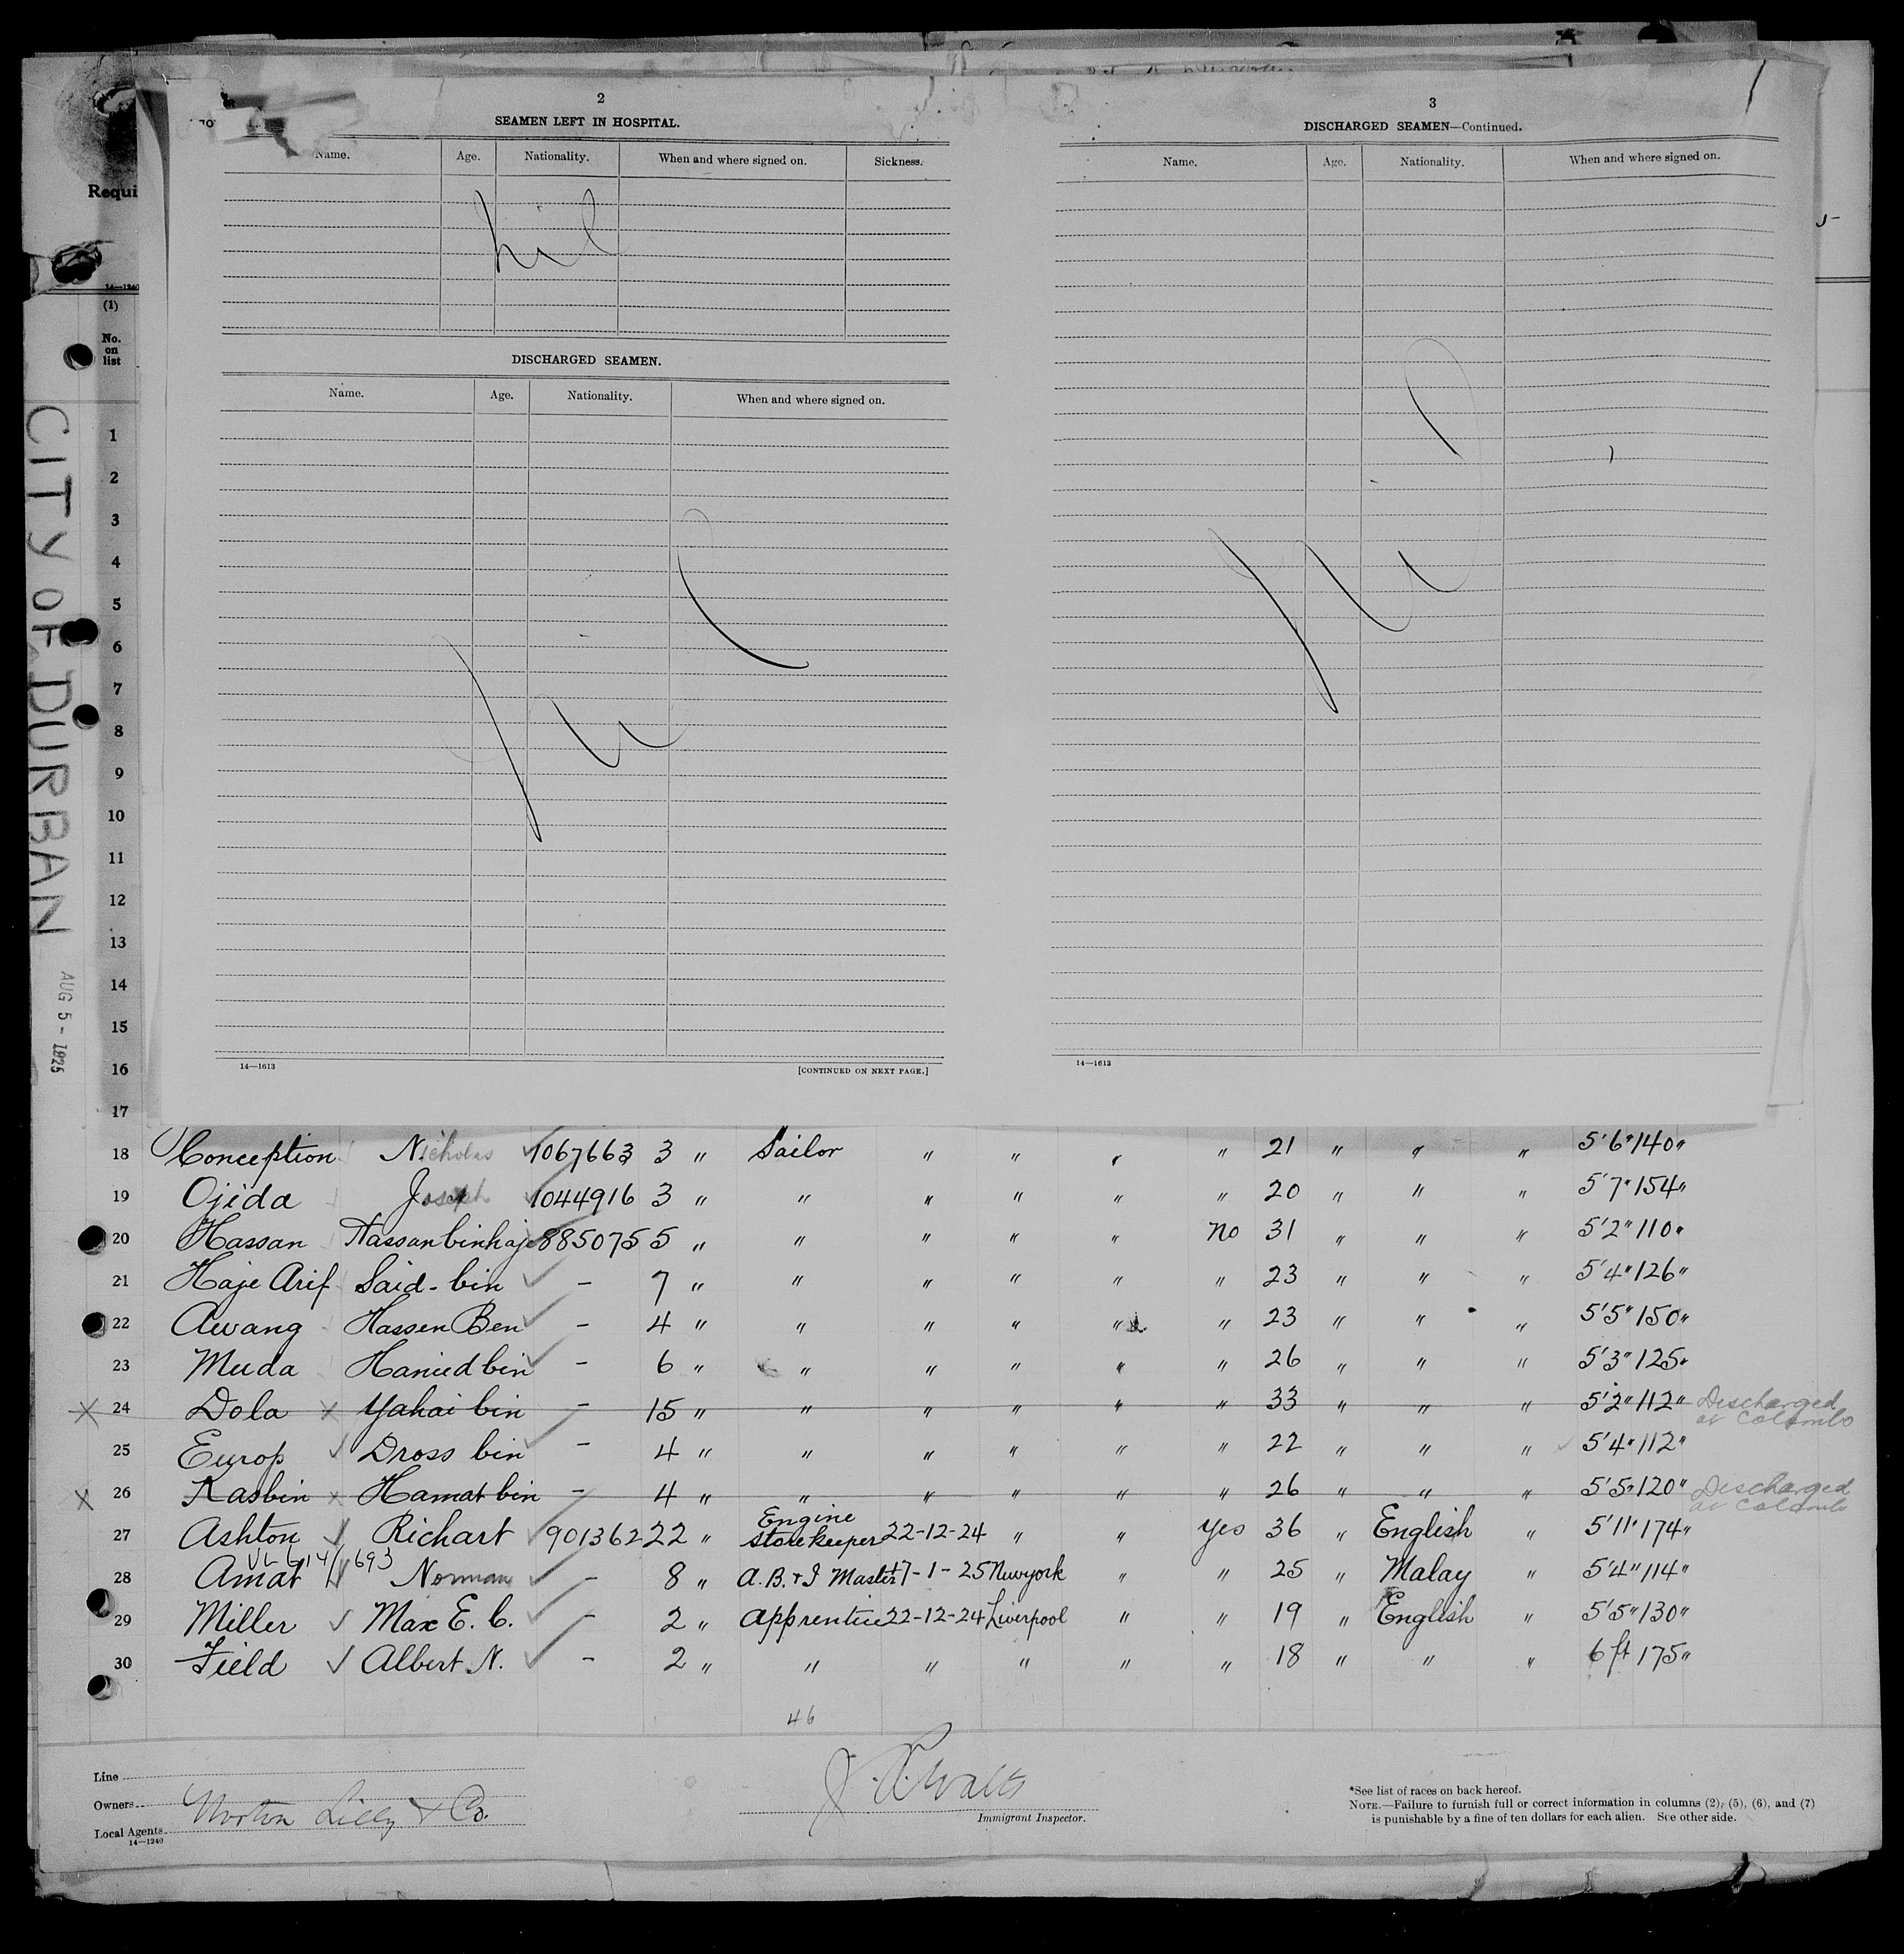 2
SEAMEN LEFT IN HOSPITAL.
Name. Age. Nationality. When and where signed on. Sickness.
Nil
DISCHARGED SEAMEN.
Name. Age. Nationality. When and where signed on.
Nil
14—1613 [CONTINUED ON NEXT PAGE.]
3
DISCHARGED SEAMEN—Continued.
Name. Age. Nationality. When and where signed on.
Nil
14—1613
Requi
14—1240
(1)
No.
on
list
CITY OF DURBAN
AUG 5 - 1925
1
2
3
4
5
6
7
8
9
10
11
12
13
14
15
16
17
18 Conception Nicholas 1067663 3 " Sailor " " " " 21 " " " 5'6" 140"
19 Ojida Joseph 1044916 3 " " " " " " 20 " " " 5'7" 154"
20 Hassan Hassan bin haje 885075 5 " " " " " No 31 " " " 5'2" 110"
21 Haje Arif Said-bin - 7 " " " " " " 23 " " " 5'4" 126"
22 Awang Hassen Ben - 4 " " " " " " 23 " " " 5'5" 150"
23 Muda Hamed bin - 6 " " " " " " 26 " " " 5'3" 125"
X 24 Dola x Yahai bin - 15 " " " " " " 33 " " " 5'2" 112" Discharged
at Colombo
25 Europ Dross bin - 4 " " " " " " 22 " " " 5'4" 112"
X 26 Kasbin x Hamat bin - 4 " " " " " " 26 " " " 5'5" 120" Discharged
at Colombo
27 Ashton Richart 901362 22 " Engine storekeeper 22-12-24 " " Yes 36 " English " 5'11" 174"
614/693
28 Amat Norman - 8 " A.B. + I Master 17-1-25 Newyork " " 25 " Malay " 5'4" 114"
29 Miller Max E. C. - 2 " Apprentice 22-12-24 Liverpool " " 19 " English " 5'5" 130"
30 Field Albert N. - 2 " " " " " " 18 " " " 6 ft 175"
46
Line
Owners
Norton Lilly & Co.
Local Agents
14—1240
Immigrant Inspector.
*See list of races on back hereof.
NOTE.—Failure to furnish full or correct information in columns (2), (5), (6), and (7)
is punishable by a fine of ten dollars for each alien. See other side.